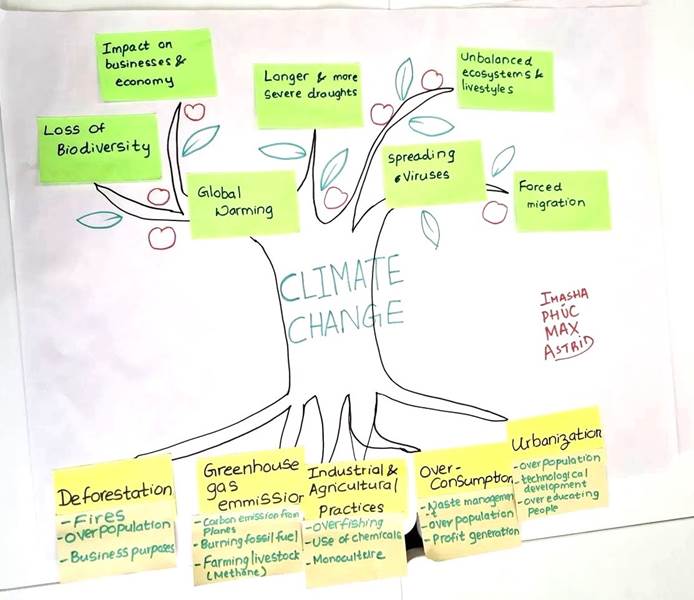 Impact on
businesses &
economy
Longer & more
severe draughts
Unbalanced
ecosystems &
livestyles
Loss of
Biodiversity
Global
Warming
Spreading
Viruses
Forced
migration
CLIMATE
CHANGE
IMASHA
PHÚC
MAX
ASTRID
Deforestation
- Fires
- overpopulation
- Business purposes
Greenhouse
gas
emmission
- Carbon emission from
Planes
- Burning fossil fuel
- Farming livestock
(Methane)
Industrial &
Agricultural
Practices
- overfishing
- Use of chemicals
- Monoculture
Over-
Consumption
- Waste managemen
t
- over population
- Profit generation
Urbanization
- over population
- technological
development
- over educating
People